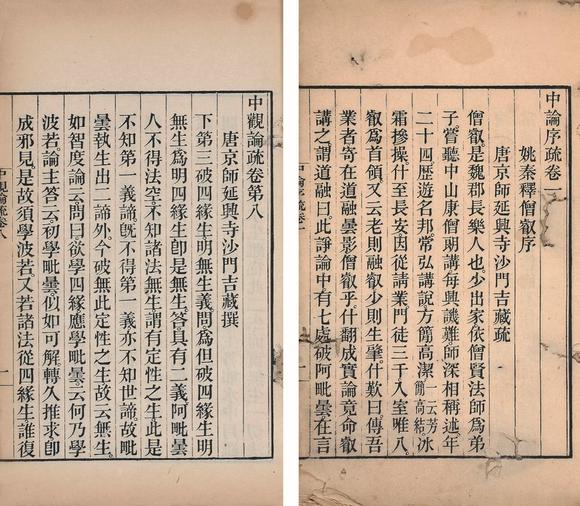 中論序疏卷一
姚秦釋僧叡序
唐京師延興寺沙門吉藏疏
僧叡是魏郡長樂人也。少出家依僧賢法師爲弟
子甞聽中山康僧朗講每興譏難師深相稱述年
二十四歷遊名邦常弘講說方簡高潔一云芳簡高結冰
霜摻操。什至長安因從請業門徒三千入室唯八
叡爲首領又云老則融叡少則生肇。什歎曰傳吾
業者寄在道融曇影僧叡乎。什翻成實論竟命叡
講之謂道融曰。此諍論中有七處破阿毗曇在言
一
中觀論疏卷第八
唐京師延興寺沙門吉藏撰
下第三破四緣生明無生義。問爲但破四緣生明
無生爲明四緣生卽是無生。答具有二義阿毗曇
人不得法空不知諸法無生謂有定性之生此是
不知第一義諦旣不得第一義亦不知世諦故毗
曇執生出二諦外。今破無此定性之生故云無生。
如智度論云問曰欲學四緣應學毗曇。云何乃學
波若。論主答云初學毗曇似如可解轉久推求卽
成邪見是故須學波若。又若諸法從四緣生誰復
一